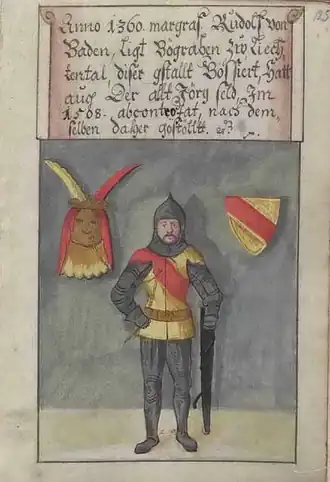 Anno 1360. margraf Rudolf von
Baden, ligt Bograben zw Liech,
tental, diser gstallt Bossiert, Hatt
auch Der allt Jörg seld, Im
1508. abcontrofat, nach dem,
selben daher gestellt.
125